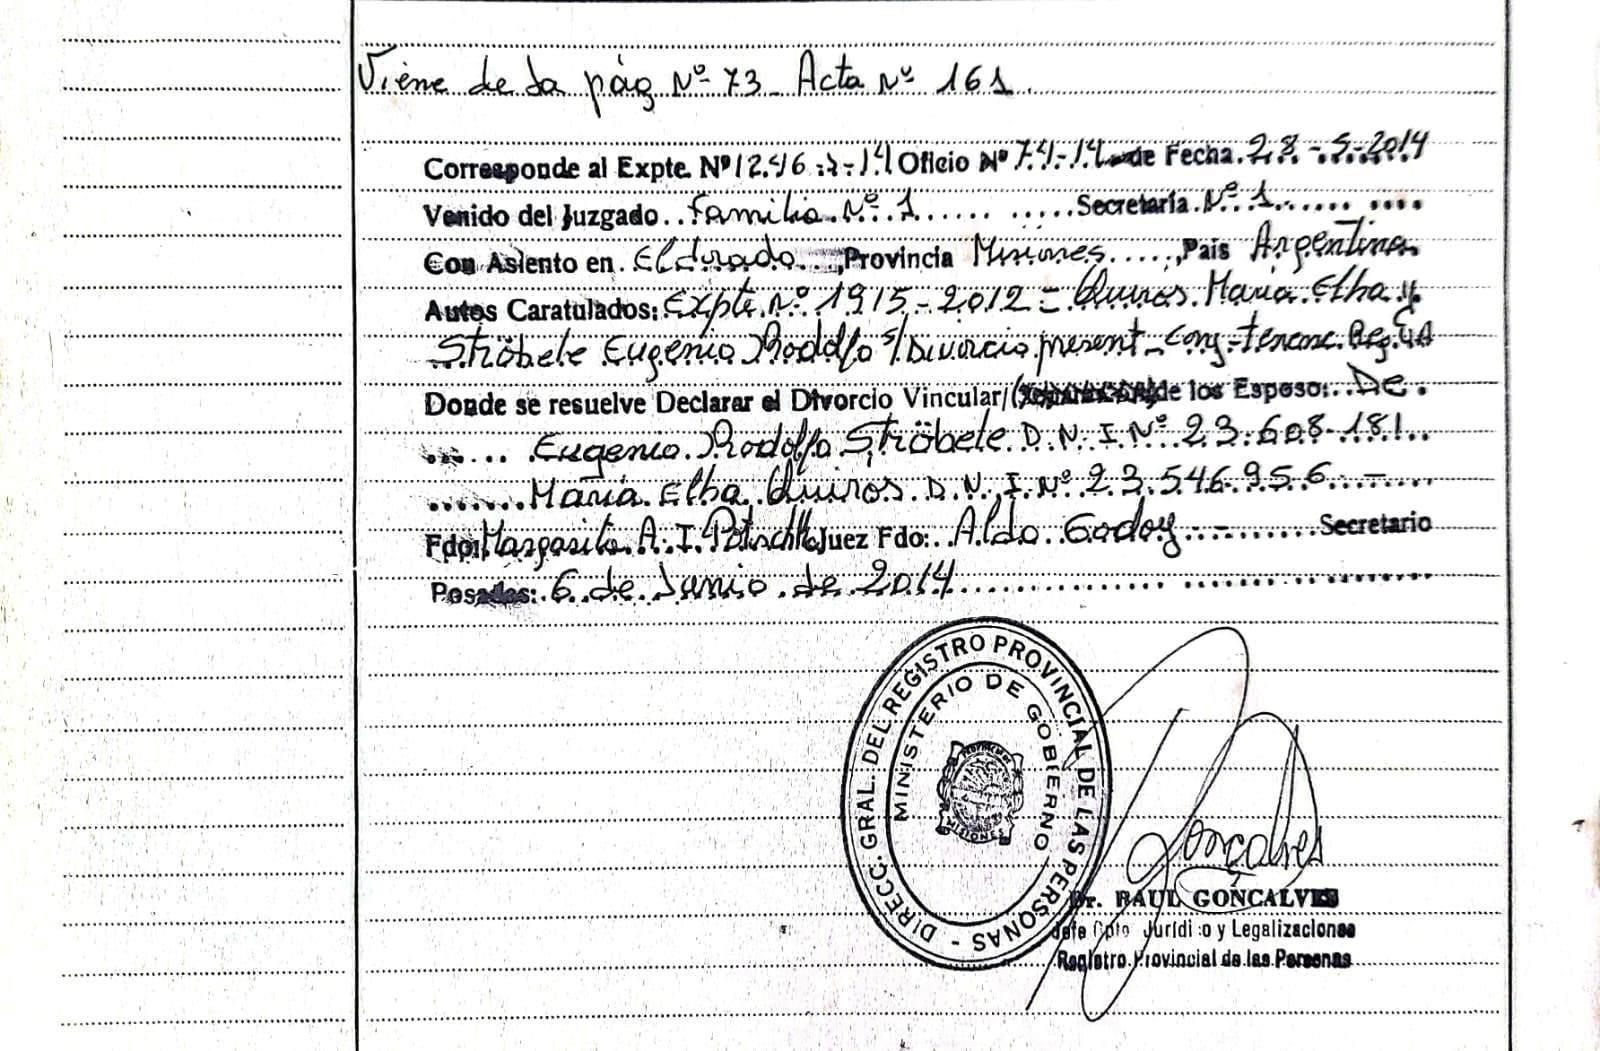 Viene de la pág Nº 73 - Acta Nº 161.
Corresponde al Expte. Nº 1246-J-14 Oficio Nº 74-14 de Fecha 28-5-2014
Venido del Juzgado Familia Nº 1 Secretaría Nº 1
Con Asiento en Eldorado, Provincia Misiones, País Argentina
Autos Caratulados: Expte Nº 1915-2012 - Quiros Maria Elba y
Ströbele Eugenio Rodolfo s/ Divorcio present. conj.
Donde se resuelve Declarar el Divorcio Vincular/ de los Esposo: De
Eugenio Rodolfo Ströbele D.N.I. Nº 23.608.181
Maria Elba Quiros D.N.I. Nº 23.546.956 -
Fdo: Margarita A. I. Juez Fdo: Aldo Godoy - Secretario
Posadas: 6 de Junio de 2014
DIRECC. GRAL. DEL REGISTRO PROVINCIAL DE LAS PERSONAS -
MINISTERIO DE GOBIERNO
MISIONES
Gonçalves
Dr. RAUL GONÇALVES
Jefe Dpto Jurídico y Legalizaciones
Registro Provincial de las Personas